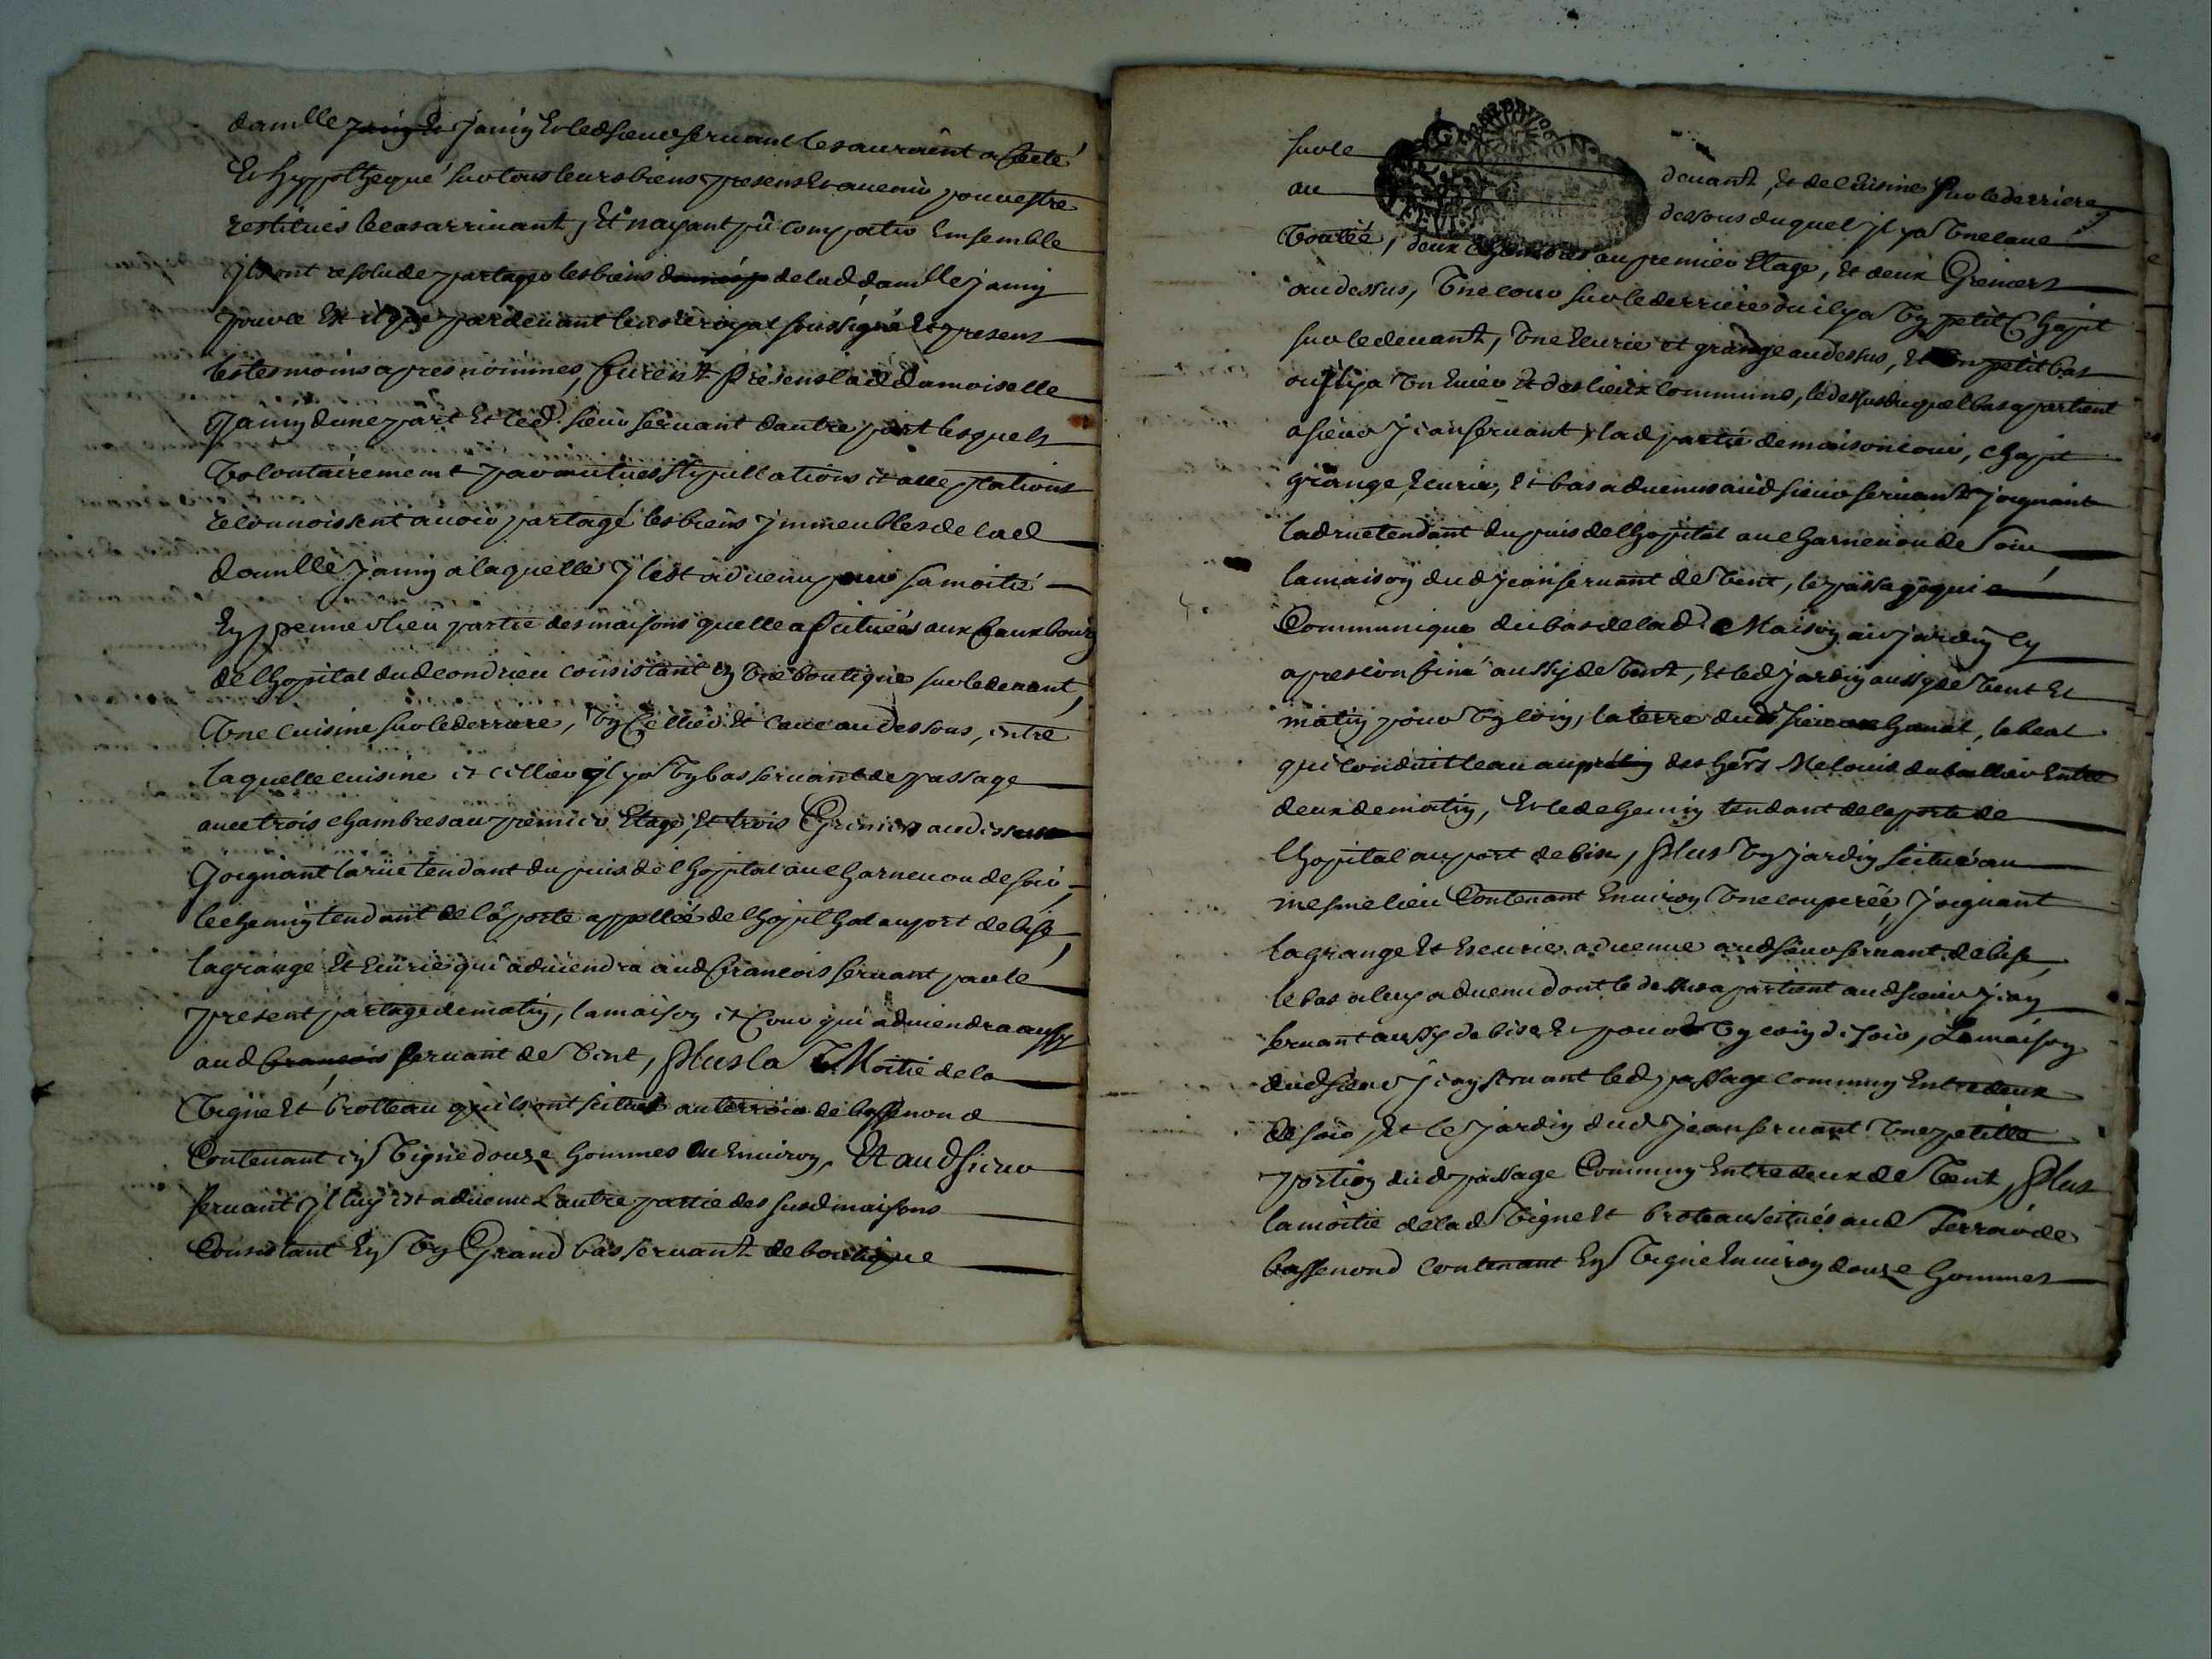 damlle janin et janin et led sieur servant les auroient afecté
et hyppothequé sur tous leurs biens presens et avenir pour estre
restitués le cas arrivant, et nayant pû compatir ensemble
ils ont resolu de partager les biens de lad damlle janin
pour ce est il que pardevant le nore royal soussigné et presens
les tesmoins apres nommés, furent presens lad damoiselle
janin dune part et led. sieur servant dautre part lesquels
volontairement par mutues stipullations et acceptations
reconnoissent avoir partagé les biens jmmeubles de lad
damlle janin a laquelle jl est advenu pour sa moitié
en premier lieu partie des maisons quelle a scituées aux fauxbourg
de lhopital dud condrieu consistant en une boutique sur le devant,
une cuisine sur le derriere, un cellier et cave au dessous, entre
laquelle cuisine et cellier jl ya un bas servant de passage
avec trois chambres au premier etage, et trois greniers au dessus
joignant la rüe tendant du puis de lhopital au charnevou de soir,
le chemin tendant de la porte appellée de lhopithal au port de bise,
la grange et ecurie qui adviendra aud francois servant par le
present partage de matin, la maison et cour qui adviendra aussy
aud francois servant de vent, plus la moitié de la
vigne et brotteau quils ont scitués au terroir de bassenond
contenant en vigne douze hommes ou environ, et aud sieur
servant jl luy est advenu lautre partie des susd maisons
consistant en un grand bas servant de boutique
sur le devant, et de cuisine sur le derriere
au dessous duquel jl ya une cave
voutée, deux chambres au premier etage, et deux greniers
au dessus, une cour sur le derriere ou il ya un petit chapit
sur le devant, une ecurie et grange au dessus, et un petit bas
ou jl ya un evier et des lieux communs, le dessus duquel bas apartient
a sieur jean servant, lad partie de maison cour, chapit
grange, ecurie, et bas advenus aud sieur servant joignant
lad rue tendant du puis de lhopital au charnevou de soir
la maison dud jean servant de vent, le passage qui
communique du bas de lad. maison au jardin cy
apres confiné aussy de vent, et led jardin aussy de vent et
matin pour un coin, la terre dud sieur chanal, le beal
qui conduit leau au des hers me louis duvallier entre
deux de matin, et led chemin tendant de la porte de
lhopital au port de bise, plus un jardin scitué au
mesme lieu contenant environ une couperée, joignant
la grange et escurie advenue aud sieur servant de bise,
le bas a luy advenu dont le dessus apartient aud sieur jean
servant aussy de bise et pour un coin de soir, la maison
dud sieur jean servant led passage commun entredeux
de soir, et le jardin dud jean servant une petitte
portion dud passage commun entredeux de vent, plus
la moitié de lad vigne et broteau scitués aud terroir de
bassenond contenant en vigne environ douze hommes